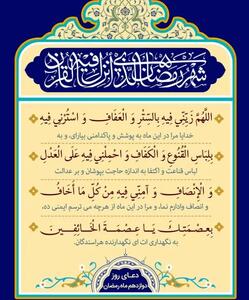 شهر رمضان الذی انزل فیه القرآن
اَللّهُمَّ زَیِّنِّی فِیهِ بِالسِّتْرِ وَ الْعَفَافِ وَ اسْتُرْنِی فِیهِ
خدایا مرا در این ماه به پوشش و پاکدامنی بیارای، و به
بِلِبَاسِ الْقُنُوعِ وَ الْکَفَافِ وَ احْمِلْنِی فِیهِ عَلَی الْعَدْلِ
لباس قناعت و اکتفا به اندازه حاجت بپوشان و بر عدالت
وَ الْإِنْصَافِ وَ آمِنِّی فِیهِ مِنْ کُلِّ مَا أَخَافُ
و انصاف وادارم نما، و مرا در این ماه از هرچه می ترسم ایمنی ده،
بِعِصْمَتِکَ یَا عِصْمَةَ الْخَائِفِینَ
به نگهداری ات ای نگهدارنده هراسندگان.
دعای روز
دوازدهم ماه رمضان